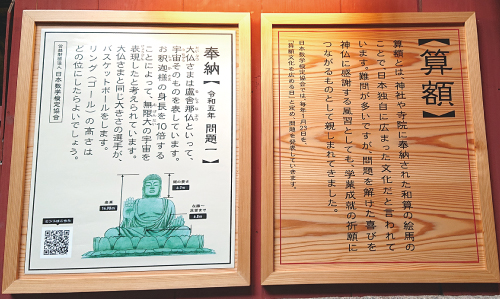 【算額】
算額とは、神社や寺院に奉納された和算の絵馬の
ことで日本独自に広まった文化だと言われて
います。難問が多いですが、問題を解けた喜びを
神仏に感謝する風習としても、学業成就の祈願に
つながるものとして親しまれてきました。
日本数学検定協会では、毎年1月23日を
「算額文化を広める日」と定め、問題を発表しています。
奉納【令和五年 問題一】
大仏さまは盧舎那仏といって、
宇宙そのものを表しています。
お釈迦様の身長を10倍する
ことによって、無限大の宇宙を
表現したと考えられています。
大仏さまと同じ大きさの選手が、
バスケットボールをします。
リング（ゴール）の高さは
どの位にしたらよいでしょう。
公益財団法人 日本数学検定協会